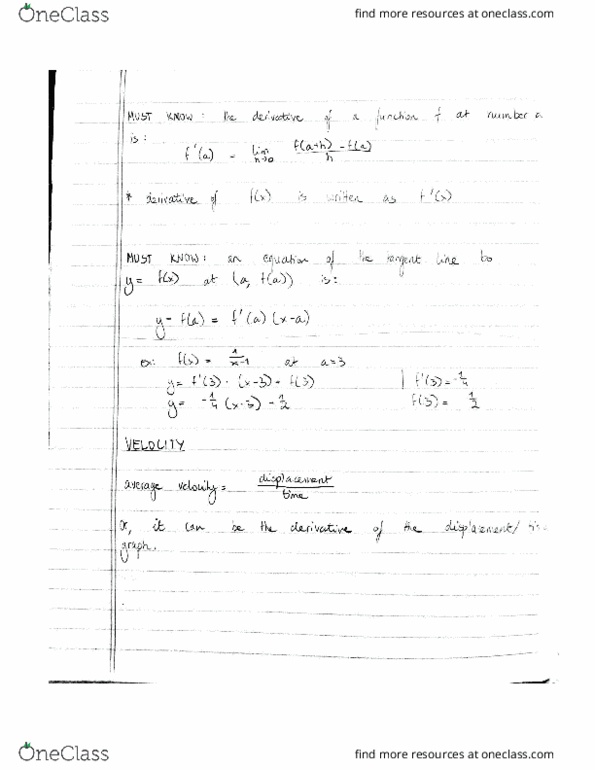 OneClass
find more resources at oneclass.com
MUST KNOW: the derivative of a function f at number a
is:
f'(a) = lim h→0 f(a+h) - f(a) / h
* derivative of f(x) is written as f'(x)
MUST KNOW: an equation of the tangent line to
y = f(x) at (a, f(a)) is:
y - f(a) = f'(a) (x-a)
ex: f(x) = 1/x-1 at a=3
y = f'(3) · (x-3) - f(3) | f'(3) = -1/4
y = -1/4 (x-3) - 1/2 f(3) = 1/2
VELOCITY
average velocity = displacement / time
Or, it can be the derivative of the displacement/
graph.
OneClass
find more resources at oneclass.com